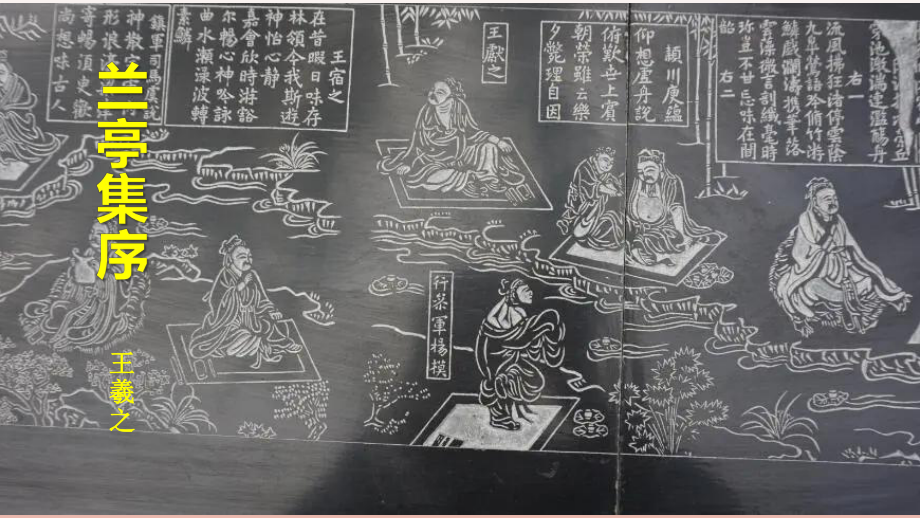 兰亭集序
王羲之
右一
流風拂枉渚停雲蔭
九皋鶯語吟脩竹游
鱗戲瀾濤攜筆落
雲藻微言剖纖毫時
珍豈不甘忘味在聞
韶 右二
潁川庾蘊
仰想虛舟說
俯歎世上賓
朝榮雖云樂
夕斃理自因
王獻之
行參軍楊模
王宿之
在昔暇日味存
林領今我斯遊
神怡心靜
嘉會欣時游豁
尔暢心神吟詠
曲水瀨淥波轉
素鱗
鎮軍司馬虞說
神散
形浪
寄暢須臾歡
尚想味古人